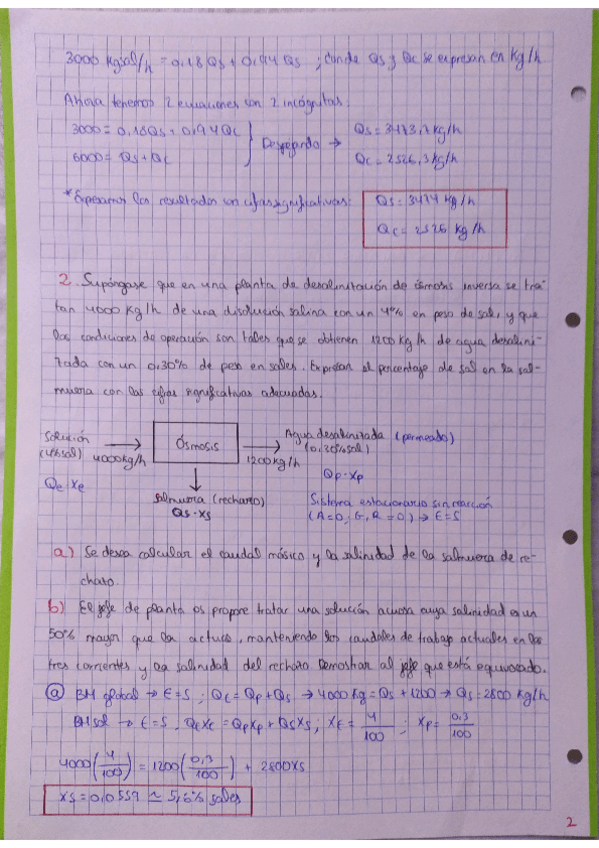 3000 kgsal/h = 0,18Qs + 0,94 Qs ; donde Qs y Qc se expresan en kg/h
Ahora tenemos 2 ecuaciones con 2 incógnitas:
3000 = 0,18Qs + 0,94Qc
6000 = Qs + Qc
Despejando →
Qs = 3473,7 kg/h
Qc = 2526,3 kg/h
*Expresamos los resultados con cifras significativas:
Qs = 3474 kg/h
Qc = 2526 kg/h
2. Supóngase que en una planta de desalinización de ósmosis inversa se tra-
tan 4000 kg/h de una disolución salina con un 4% en peso de sal, y que
las condiciones de operación son tales que se obtienen 1200 kg/h de agua desalini-
zada con un 0,30% de peso en sales. Expresar el porcentaje de sal en la sal-
muera con las cifras significativas adecuadas.
Solución
(4% sal)
4000kg/h
Qe · Xe
Ósmosis
Agua desalinizada (permeado)
(0,30% sal)
1200 kg/h
Qp · Xp
Salmuera (rechazo)
Qs · Xs
Sistema estacionario sin reacción
(A=0; G, R=0) → E=S
a) Se desea calcular el caudal másico y la salinidad de la salmuera de re-
chazo.
b) El jefe de planta os propone tratar una solución acuosa cuya salinidad es un
50% mayor que la actual, manteniendo los caudales de trabajo actuales en las
tres corrientes y la salinidad del rechazo. Demostrar al jefe que está equivocado.
a BM global → E=S ; Qe = Qp + Qs → 4000 kg = Qs + 1200 → Qs = 2800 kg/h
BM sal → E=S ; QeXe = QpXp + QsXs ; XE = 4/100 ; XP = 0,3/100
4000(4/100) = 1200(0,3/100) + 2800Xs
Xs = 0,0559 ≃ 5,6% sales
2